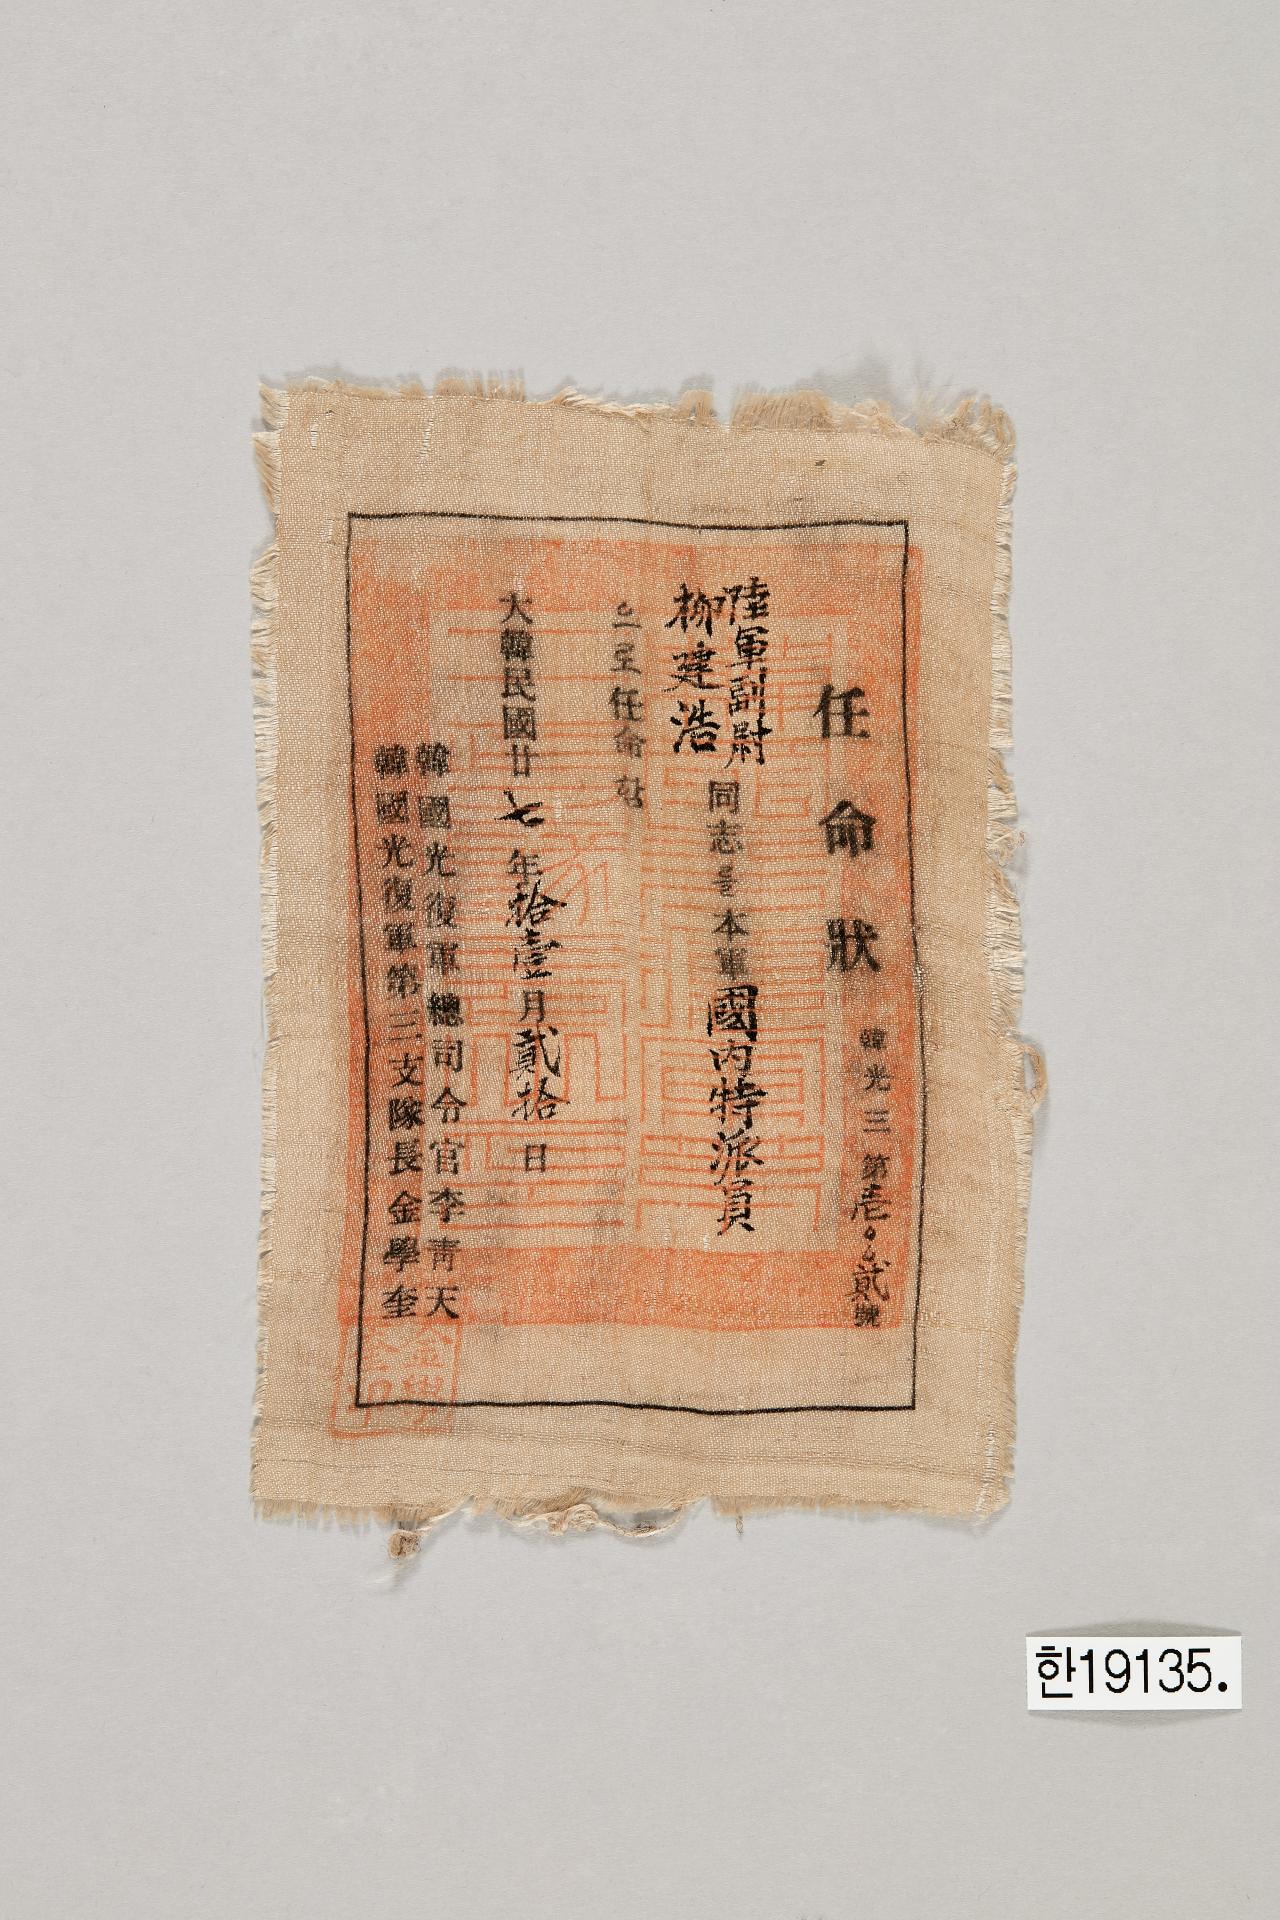 任命狀
韓光三第壱００貳號
陸軍副尉
柳建浩
同志를本軍國內特派員
으로任命함
大韓民國廿七年拾壹月貳拾日
韓國光復軍總司令官李靑天
韓國光復軍第三支隊長金學奎
金學
奎印
한19135.